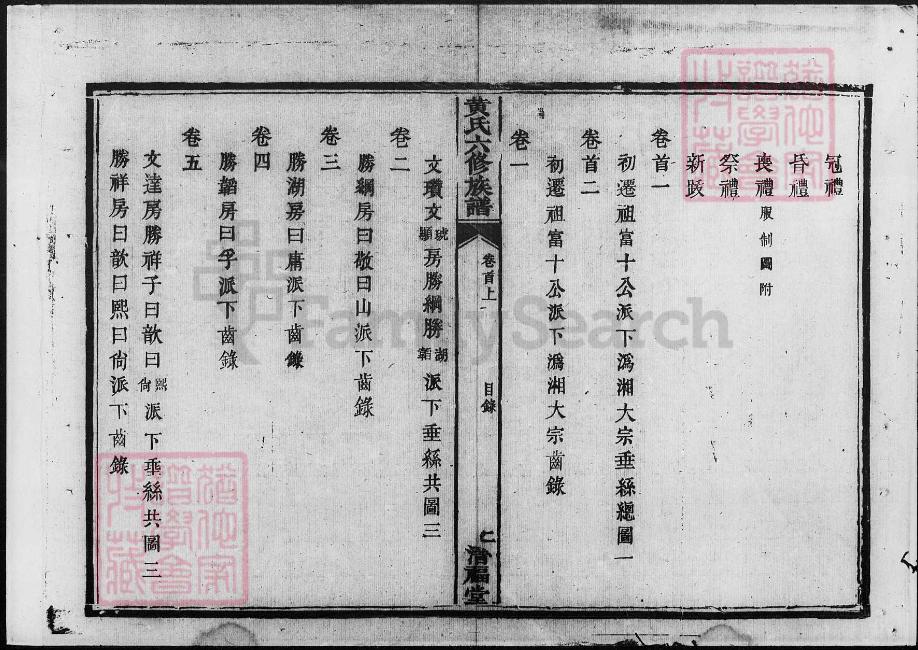 冠禮
昏禮
喪禮 服制圖附
祭禮
新跋
卷首一
初遷祖富十公派下溈湘大宗垂絲總圖一
卷首二
初遷祖富十公派下溈湘大宗齒錄
卷一
黃氏六修族譜
卷首上
目錄
七
滑福堂
文瓚文琥顯房勝綱勝湖韜派下垂絲共圖三
卷二
勝綱房曰敬曰山派下齒錄
卷三
勝湖房曰庸派下齒錄
卷四
勝韜房曰孚派下齒錄
卷五
文達房勝祥子曰歆曰熙尙派下垂絲共圖三
勝祥房曰歆曰熙曰尙派下齒錄
FamilySearch